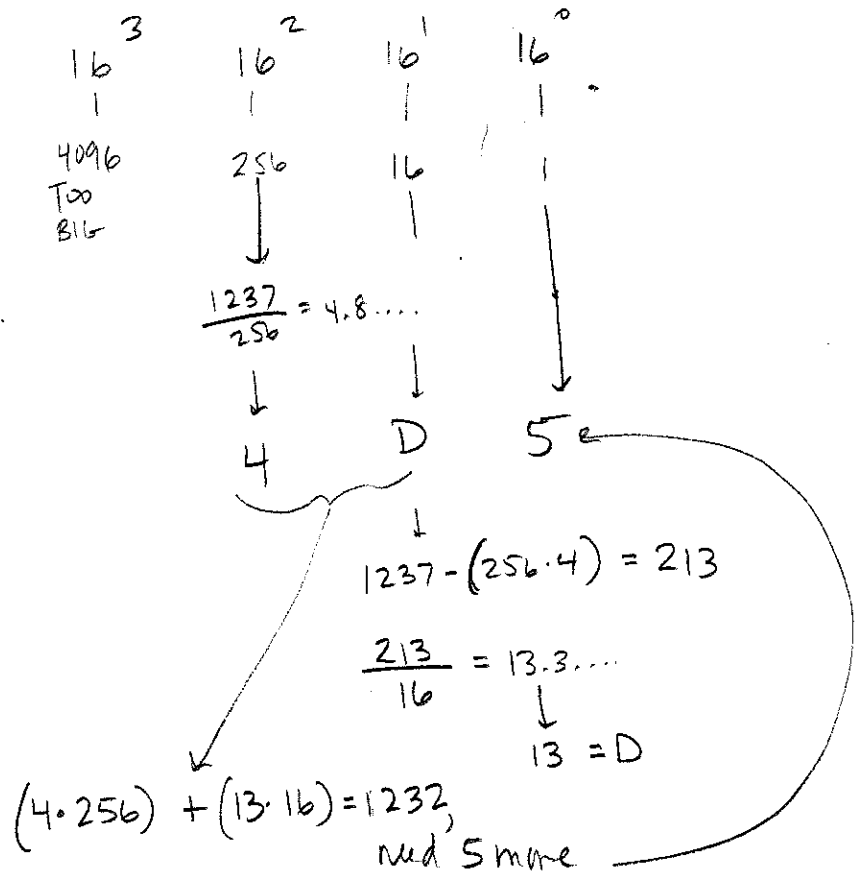 16³ 16² 16¹ 16⁰
4096 256 16 1
TOO
BIG
1237/256 = 4.8....
4 D 5
1237-(256·4) = 213
213/16 = 13.3....
13 = D
(4·256) + (13·16) = 1232,
need 5 more